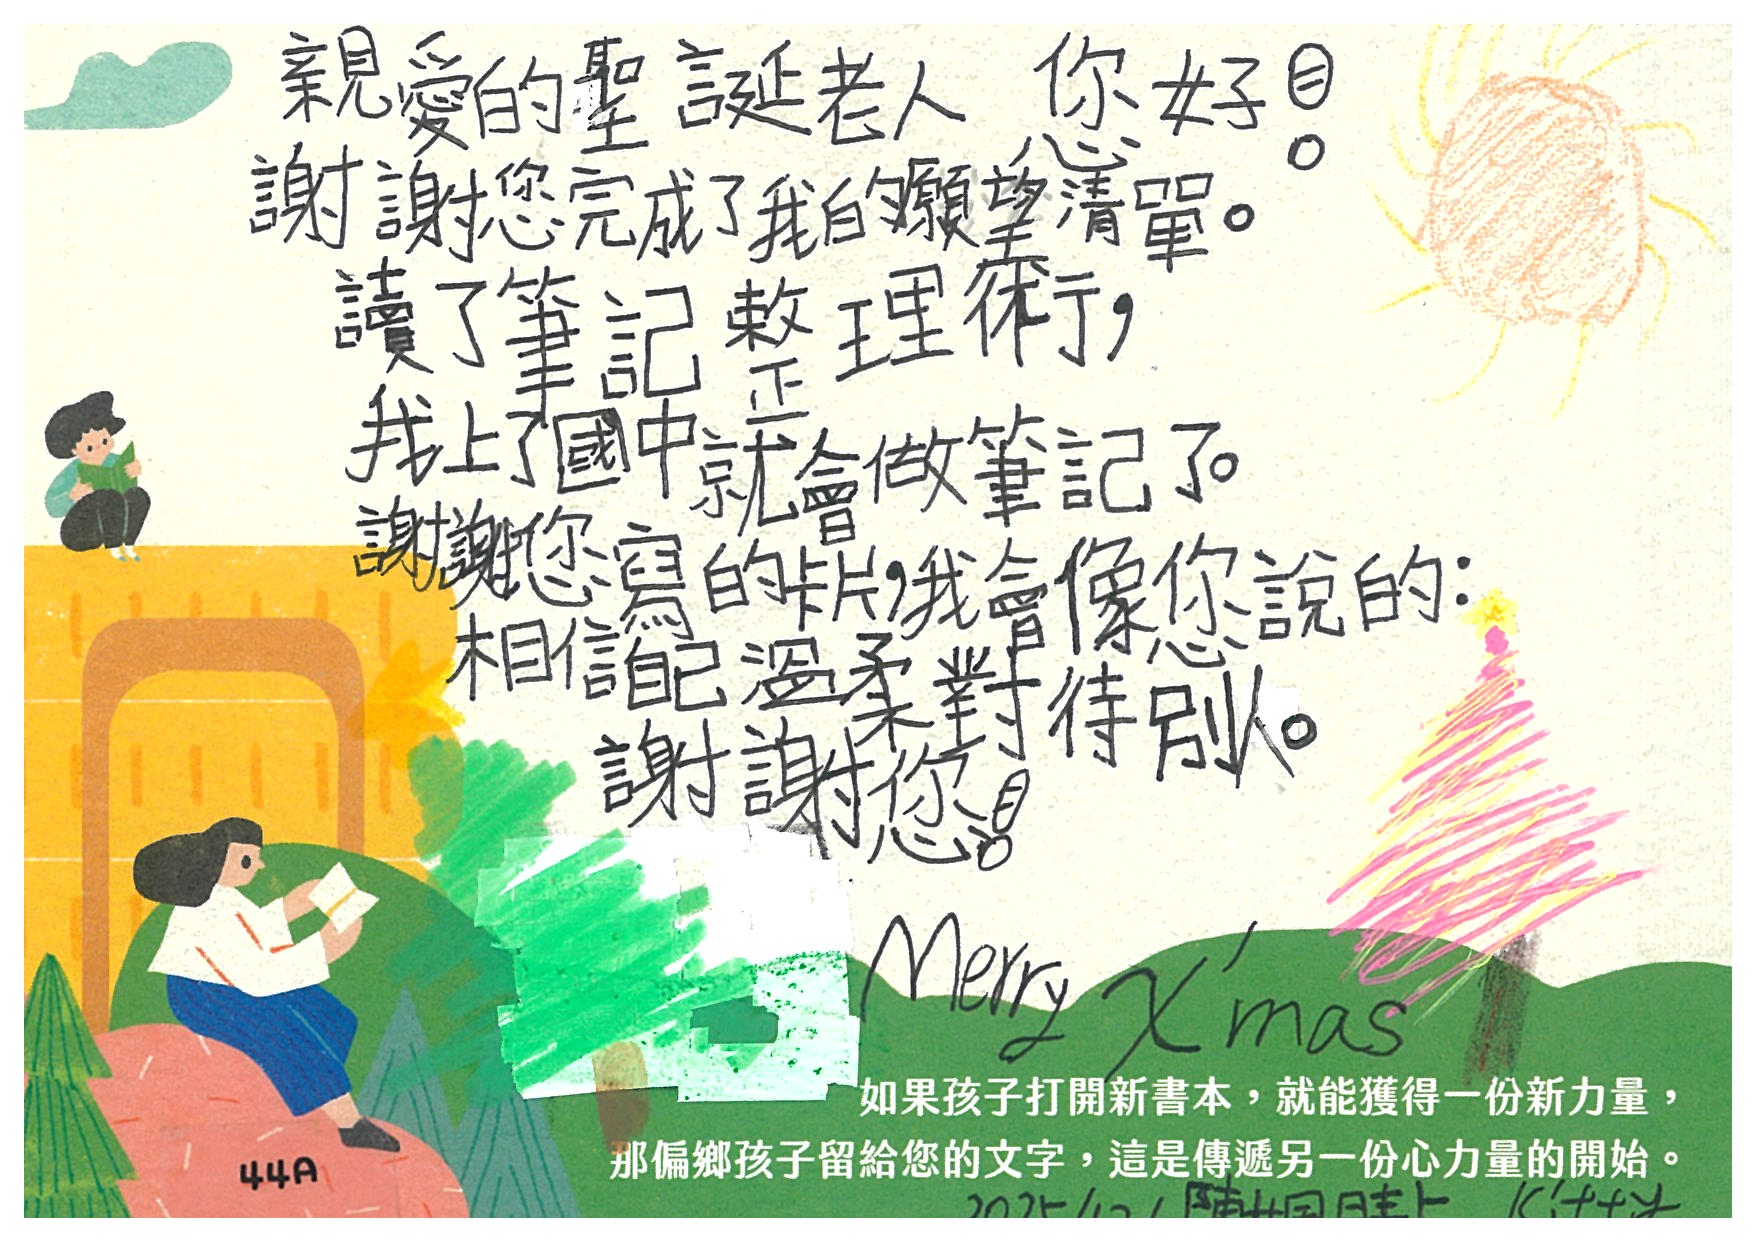 親愛的聖誕老人 您好！
謝謝您完成了我的願望清單。
讀了筆記整理術，
我上了國中就會做筆記了。
謝謝您寫的卡片，我會像您說的：
相信自己溫柔對待別人。
謝謝您！
Merry X'mas
如果孩子打開新書本，就能獲得一份新力量，
那偏鄉孩子留給您的文字，這是傳遞另一份心力量的開始。
44A
Kitty